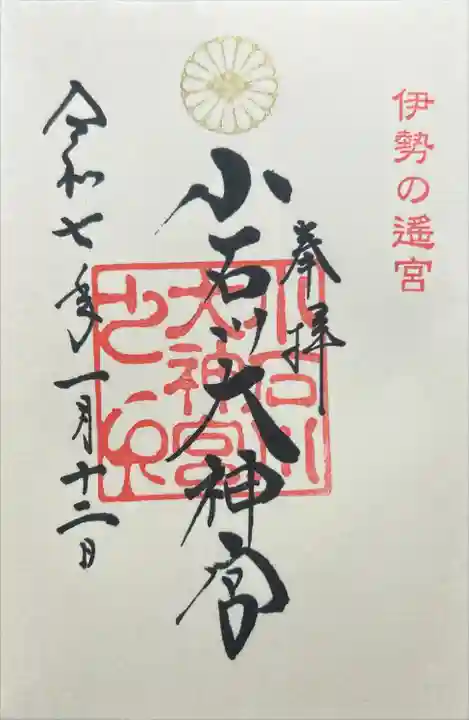 伊勢の遥宮
奉拝
小石川大神宮
令和七年一月十二日
小石川
大神宮
之印